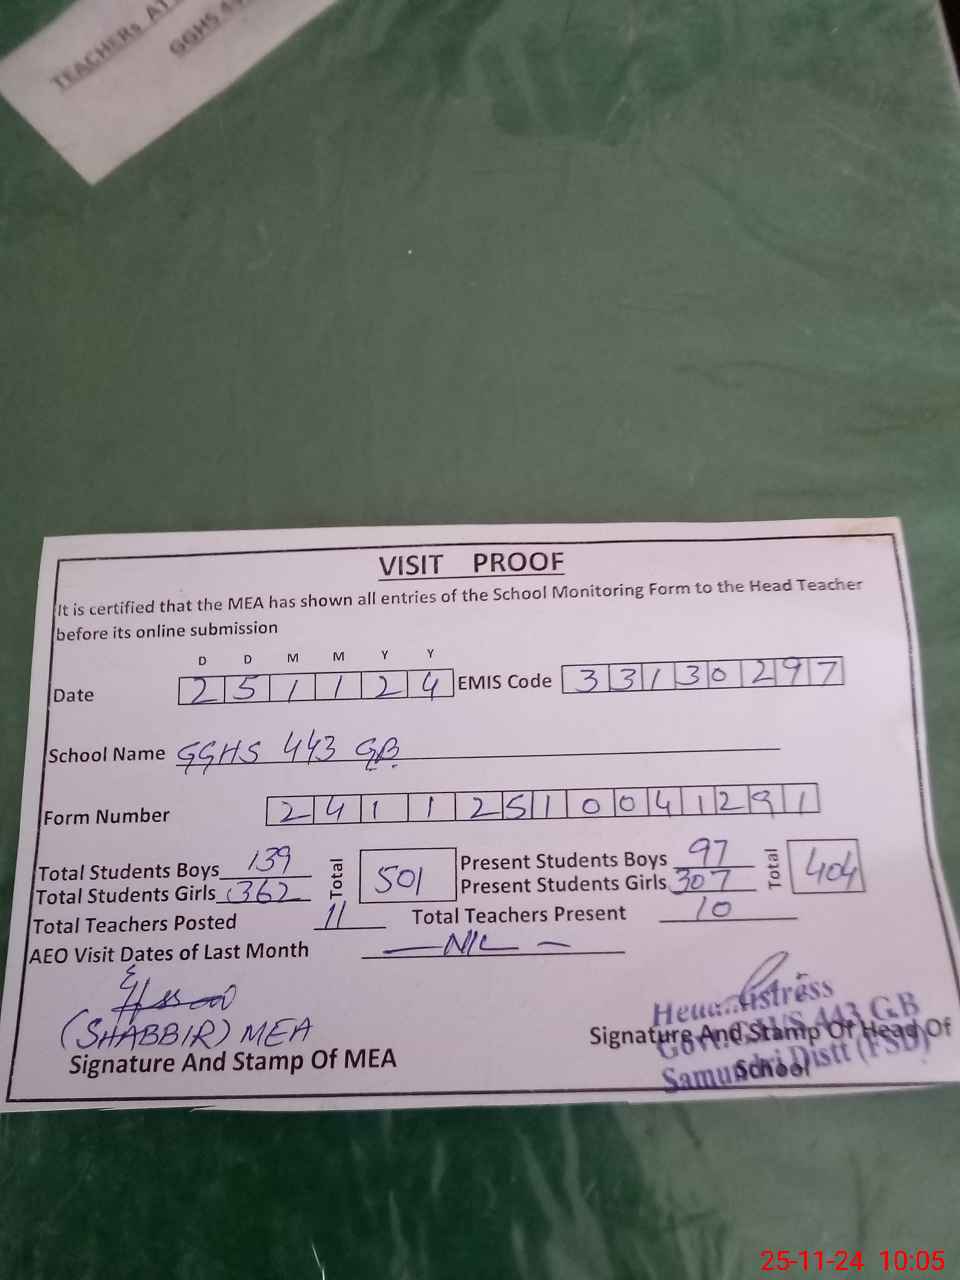 TEACHERs
GGHS
VISIT PROOF
It is certified that the MEA has shown all entries of the School Monitoring Form to the Head Teacher
before its online submission
D D M M Y Y
Date 2 5 1 1 2 4 EMIS Code 3 3 1 3 0 2 9 7
School Name GGHS 443 GB
Form Number 2 4 1 1 2 5 1 0 0 4 1 2 9 1
Total Students Boys 139 Total 501 Present Students Boys 97 Total 404
Total Students Girls 362 Present Students Girls 307
Total Teachers Posted 11 Total Teachers Present 10
AEO Visit Dates of Last Month — NIL —
(SHABBIR) MEA
Signature And Stamp Of MEA
Signature And Stamp Of Head Of
School
Headmistress
Govt. GHS 443 GB
Samundri Distt (FSD)
25-11-24 10:05